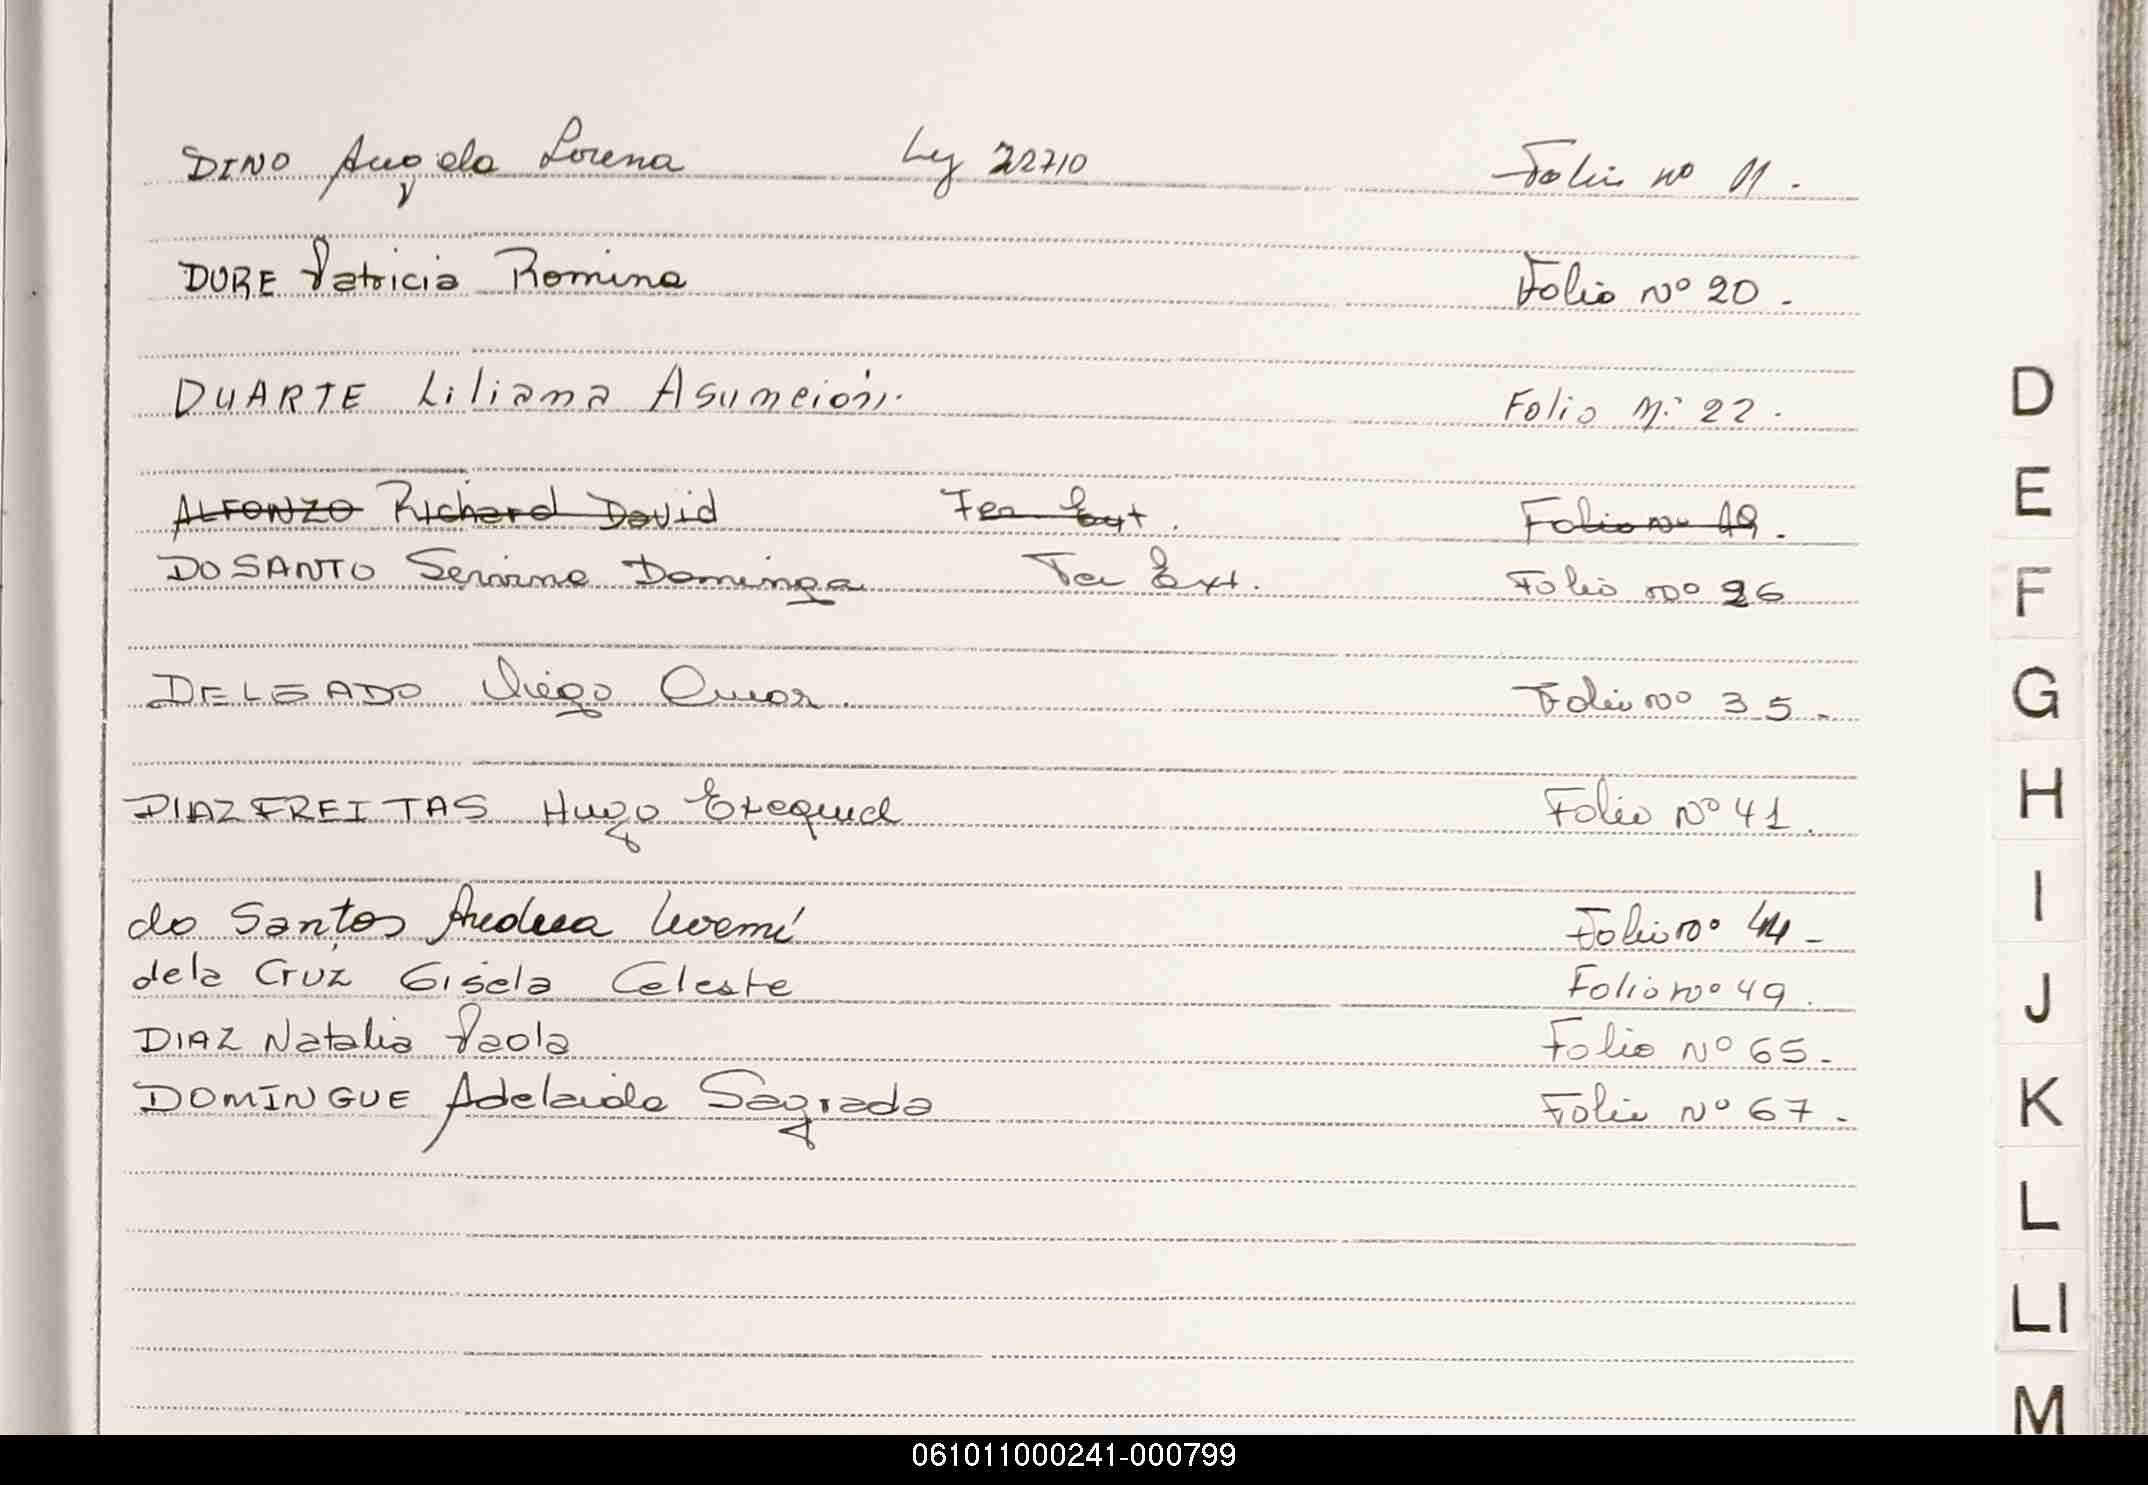 DINO Angela Lorena Ley 22710 Folio nº 01.
DURE Patricia Romina Folio Nº 20.
DUARTE Liliana Asunción. Folio Nº 22.
ALFONZO Richard David Ter Ext. Folio nº 19.
DO SANTO Servina Dominga Ter Ext. Folio nº 26
DELGADO Diego Omar. Folio Nº 35.
DIAZ FREITAS Hugo Exequiel Folio Nº 41.
do Santos Andrea Noemí Folio nº 44-
dela Cruz Gisela Celeste Folio nº 49.
DIAZ Natalia Paola Folio Nº 65.
DOMINGUE Adelaida Sagrada Folio Nº 67.
D
E
F
G
H
I
J
K
L
Ll
M
061011000241-000799